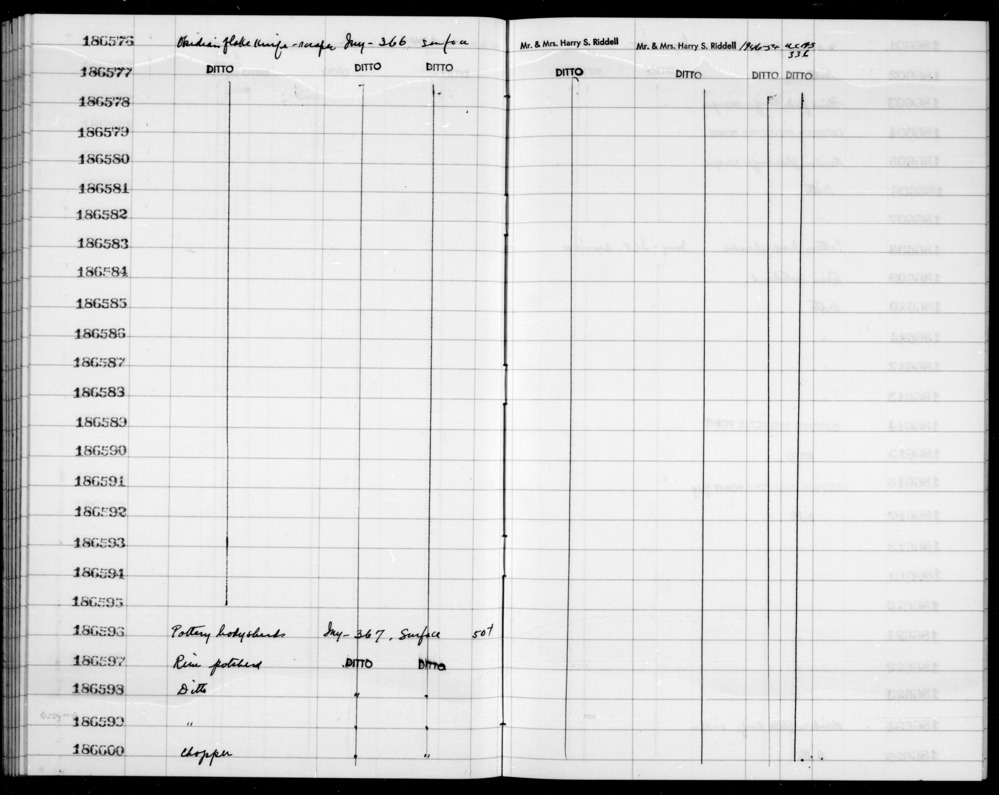 186576 Obsidian flake knife-scraper Iny-366 surface Mr. & Mrs. Harry S. Riddell Mr. & Mrs. Harry S. Riddell
186577 DITTO DITTO DITTO DITTO DITTO DITTO DITTO
186578
186579
186580
186581
186582
186583
186584
186585
186586
186587
186588
186589
186590
186591
186592
186593
186594
186595
186596 Pottery bodysherds Iny-367, Surface 50+
186597 Rim potsherd DITTO DITTO
186598 Ditto " "
186599 " " "
186600 Chopper " "